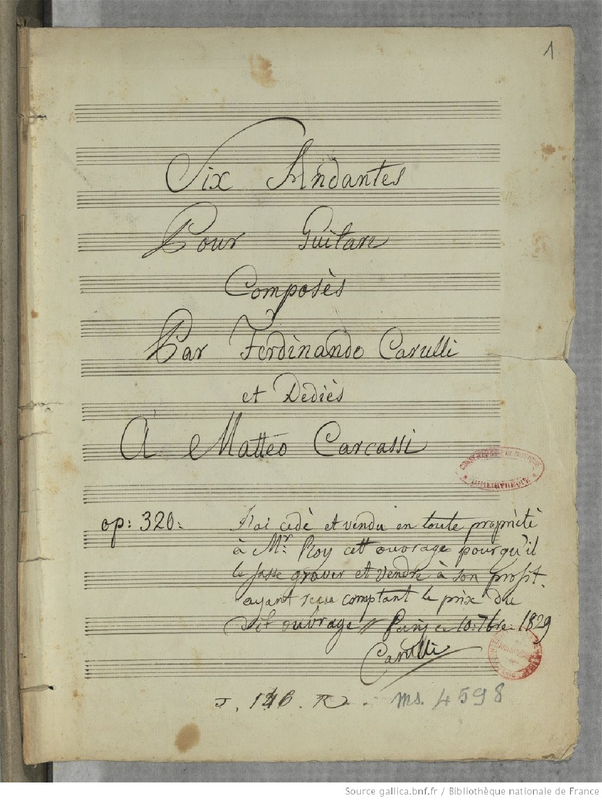 1
Six Andantes
Pour Guitare
Composès
Par Ferdinando Carulli
et Dediès
A Matteo Carcassi
BIBLIOTHÈQUE
op: 320: J'ai cèdè et vendu en toute propriètè
à Mr. Roy cett ouvrage pourqu'il
le fasse graver et vendre à son profit.
ayant recu comptant le prix du
dit ouvrage // Paris ce 10. 7bre. 1829
Carulli
ms. 4598
Source gallica.bnf.fr / Bibliothèque nationale de France